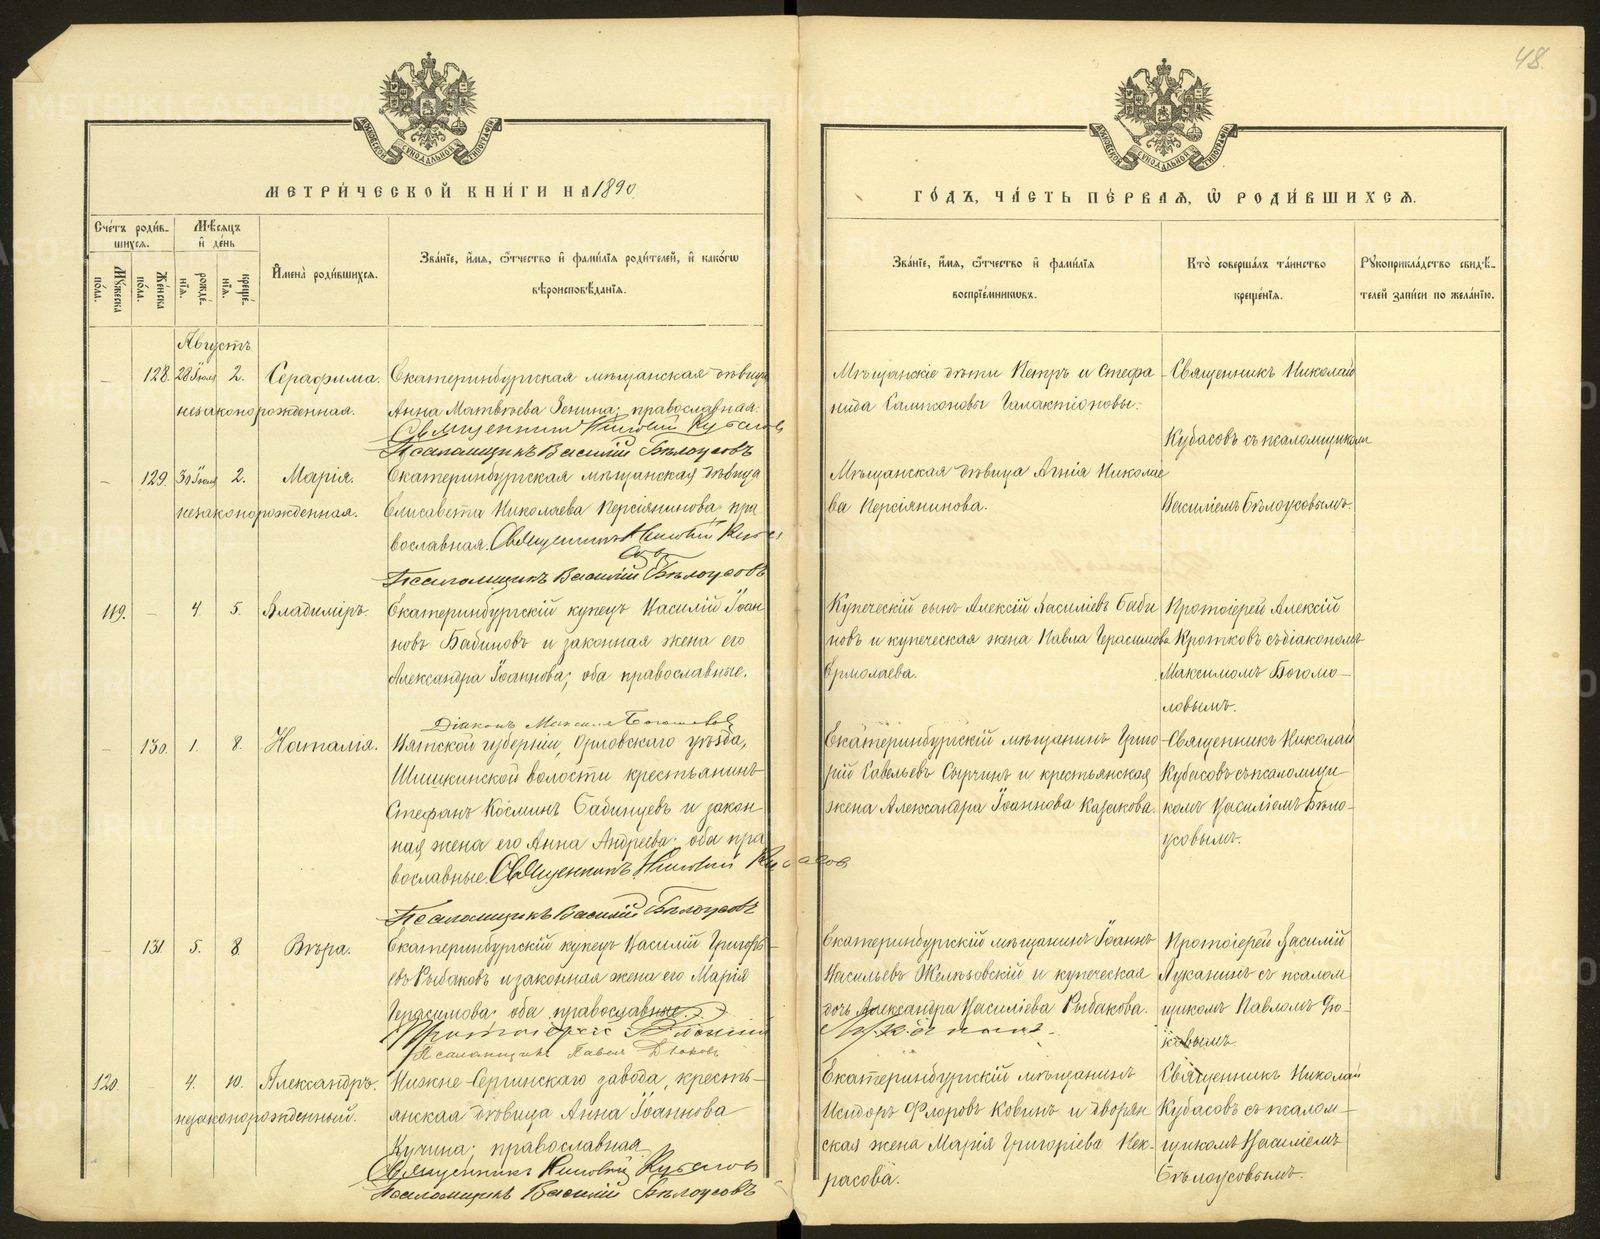 48.
МЕТРИ́ЧЕСКОЙ КНИ́ГИ НА 1890
ГО́ДЪ, ЧА́СТЬ ПЕ́РВАѦ, Ѽ РОДИ́ВШИХСѦ.
Сче́тъ роди́в-
шихсѧ.
Мѣ́сѧцъ
и҆ де́нь
Мꙋжеска
по́ла.
Же́нска
по́ла.
рожде́-
нїѧ.
креще́-
нїѧ.
И҆мена̀ роди́вшихсѧ.
Зва́нїе, и҆́мѧ, ѻ҆́тчество и҆ фами́лїѧ роди́телей, и҆ како́гѡ
вѣроисповѣ́данїѧ.
Зва́нїе, и҆́мѧ, ѻ҆́тчество и҆ фами́лїѧ
воспрїе́мникѡвъ.
Кто̀ соверша́лъ та́инство
креще́нїѧ.
Рꙋкоприкла́дство свидѣ́-
телей за́писи по жела́нїю.
Августъ
128. 28 Іюля 2. Серафима.
незаконорожденная.
Екатеринбургская мѣщанская дѣвица
Анна Матвѣева Зенина; православная.
Священникъ Николай Кубасов
Псаломщикъ Василій Бѣлоусовъ
Мѣщанскіе дѣти Петръ и Стефа-
нида Сампсоновы Галактіоновы.
Священникъ Николай
Кубасовъ съ псаломщикомъ
Василіемъ Бѣлоусовымъ.
129. Іюля 2. Марія.
незаконорожденная.
Екатеринбургская мѣщанская дѣвица
Елисавета Николаева Персіянинова, пра
вославная. Священникъ Николай Куба
совъ
Псаломщикъ Василій Бѣлоусовъ
Мѣщанская дѣвица Агнія Николае
ва Персіянинова.
119. 4 5. Владиміръ.
Екатеринбургскій купецъ Василій Іоан
новъ Бабиновъ и законная жена его
Александра Іоаннова; оба православные.
Діаконъ Максимъ Богомоловъ
Купеческій сынъ Алексій Василіевъ Баби
новъ и купеческая жена Павла Герасимова
Ермолаева.
Протоіерей Алексій
Кротковъ съ діакономъ
Максимомъ Богомо-
ловымъ.
130. 1. 8. Наталія.
Вятской губерніи, Орловскаго уѣзда,
Шишкинской волости крестьянинъ
Стефанъ Косминъ Бабинцевъ и закон-
ная жена его Анна Андреева; оба пра
вославные. Священникъ Николай Кубасов
Псаломщикъ Василій Бѣлоусовъ
Екатеринбургскій мѣщанинъ Григо-
рій Савельевъ Сырчинъ и крестьянская
жена Александра Іоаннова Казакова.
Священникъ Николай
Кубасовъ съ псаломщи-
комъ Василіемъ Бѣло-
усовымъ.
131. 5. 8. Вѣра.
Екатеринбургскій купецъ Василій Григорь-
евъ Рыбаковъ и законная жена его Марія
Герасимова; оба православные.
Протоіерей Василій
Псаломщикъ Павелъ
Екатеринбургскій мѣщанинъ Іоаннъ
Васильевъ Желѣзовскій и купеческая
дочь Александра Василіева Рыбакова.
Луканинъ.
Протоіерей Василій
Луканинъ съ псалом
щикомъ Павломъ
120. 4. 10. Александръ.
незаконорожденный.
Нижне-Сергинскаго завода, кресть-
янская дѣвица Анна Іоаннова
Кучина; православная
Священникъ Николай Кубасов
Псаломщикъ Василій Бѣлоусовъ
Екатеринбургскій мѣщанинъ
Исидоръ Флоровъ Ковинъ и дворян
ская жена Марія Григоріева Нек-
расова.
Священникъ Николай
Кубасовъ съ псалом-
щикомъ Василіемъ
Бѣлоусовымъ.